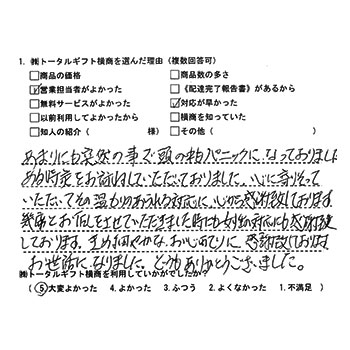 1. ㈱トータルギフト横商を選んだ理由（複数回答可）
□商品の価格 □商品数の多さ
☑営業担当者がよかった □《配達完了報告書》があるから
□無料サービスがよかった ☑対応が早かった
□以前利用してよかったから □横商を知っていた
□知人の紹介（ 様） □その他（ ）
あまりにも突然の事で頭の中がパニックになっておりました
お訪ねしていただいておりました 心に寄りそって
いただいてその温かみのあふれる対応に、心から感謝致しております
幾度とお伺いをさせていただきました時にも 対応にも感謝致
しております。きめ細やかな、おもてなしに 感謝致しております
お世話になりました。どうもありがとうございました。
㈱トータルギフト横商を利用していかがでしたか？
（ ⑤大変よかった 4. よかった 3. ふつう 2. よくなかった 1. 不満足 ）